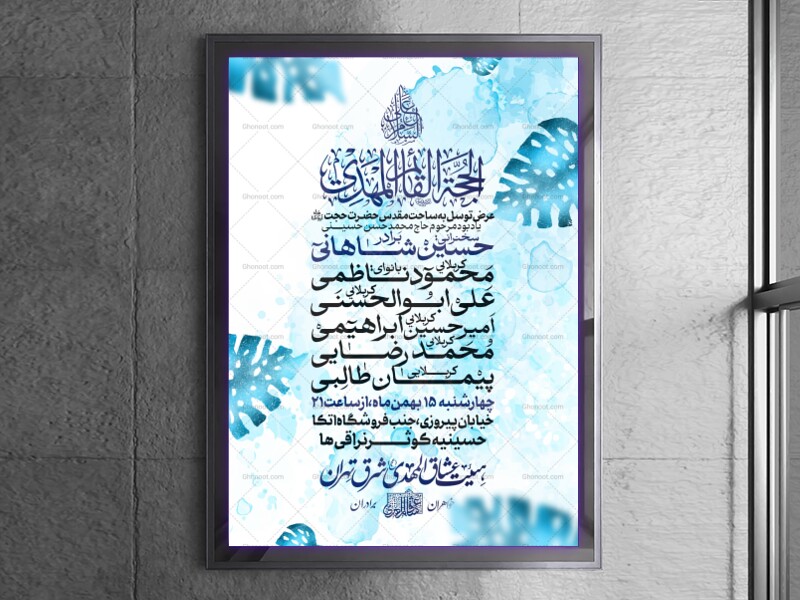 السلام علی
الحجة القائم المهدی
عرض توسل به ساحت مقدس حضرت حجت
یادبود مرحوم حاج محمدحسن حسینی
سخنرانی: برادر
حسین شاهانی
بانوای: کربلایی
محمود ناظمی
کربلایی
علی ابوالحسنی
کربلایی
امیرحسین ابراهیمی
و کربلایی
محمد رضایی
کربلایی
پیمان طالبی
چهارشنبه ۱۵ بهمن ماه، از ساعت ۲۱
خیابان پیروزی، جنب فروشگاه اتکا
حسینیه کوثر نراقی ها
هیئت عشاق المهدی شرق تهران
خواهران برادران
Ghonoot.com